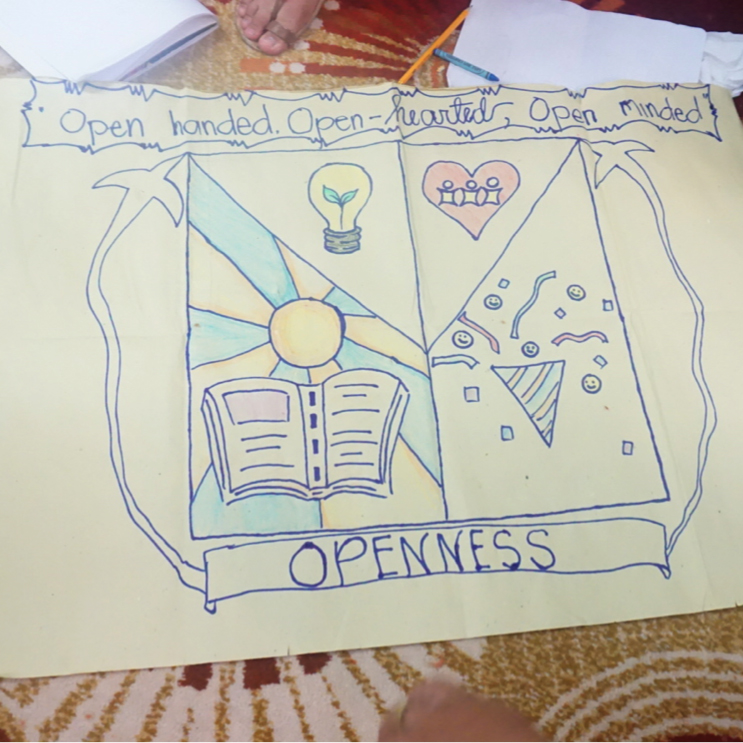 Open handed. Open-hearted, Open minded
OPENNESS